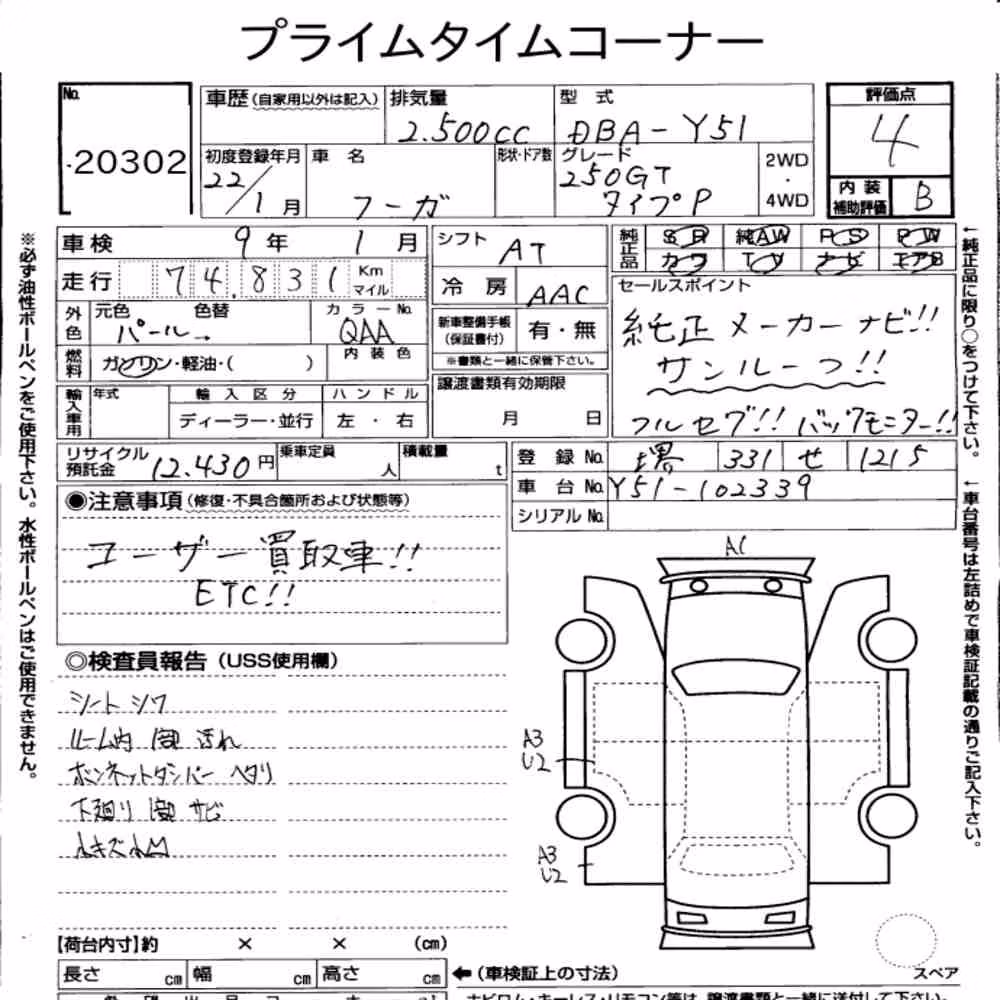 プライムタイムコーナー
No. 20302
車歴(自家用以外は記入) 排気量 2.500cc 型式 DBA-Y51
初度登録年月 22/1月 車名 フーガ 形状・ドア数 グレード 250GT タイプP 2WD・4WD
評価点 4
内装補助評価 B
車検 9年 1月
走行 74.831 Km マイル
外色 元色 パール 色替 カラーNo. QAA
燃料 ガソリン・軽油・( ) 内装色
輸入車用 年式 輸入区分 ディーラー・並行 ハンドル 左・右
シフト AT
冷房 AAC
新車整備手帳(保証書付) 有・無
※書類と一緒に保管下さい。
譲渡書類有効期限 月 日
純正品 SR 純AW PS PW
カワ TV ナビ エアB
セールスポイント
純正メーカーナビ!!
サンルーフ!!
フルセグ!! バックモニター!!
リサイクル預託金 12.430円 乗車定員 人 積載量 t
登録No. 堺 331 せ 1215
車台No. Y51-102339
シリアルNo.
◉注意事項(修復・不具合箇所および状態等)
ユーザー買取車!!
ETC!!
◎検査員報告(USS使用欄)
シートシワ
ルーム内 汚れ
ボンネットダンパー ヘタリ
下廻り サビ
小キズ小凹
A1
A3
U2
A3
U2
スペア
【荷台内寸】約 × × (cm)
長さ cm 幅 cm 高さ cm ←(車検証上の寸法)
※必ず油性ボールペンをご使用下さい。水性ボールペンはご使用できません。
←純正品に限り○をつけて下さい。
←車台番号は左詰めで車検証記載の通りご記入下さい。